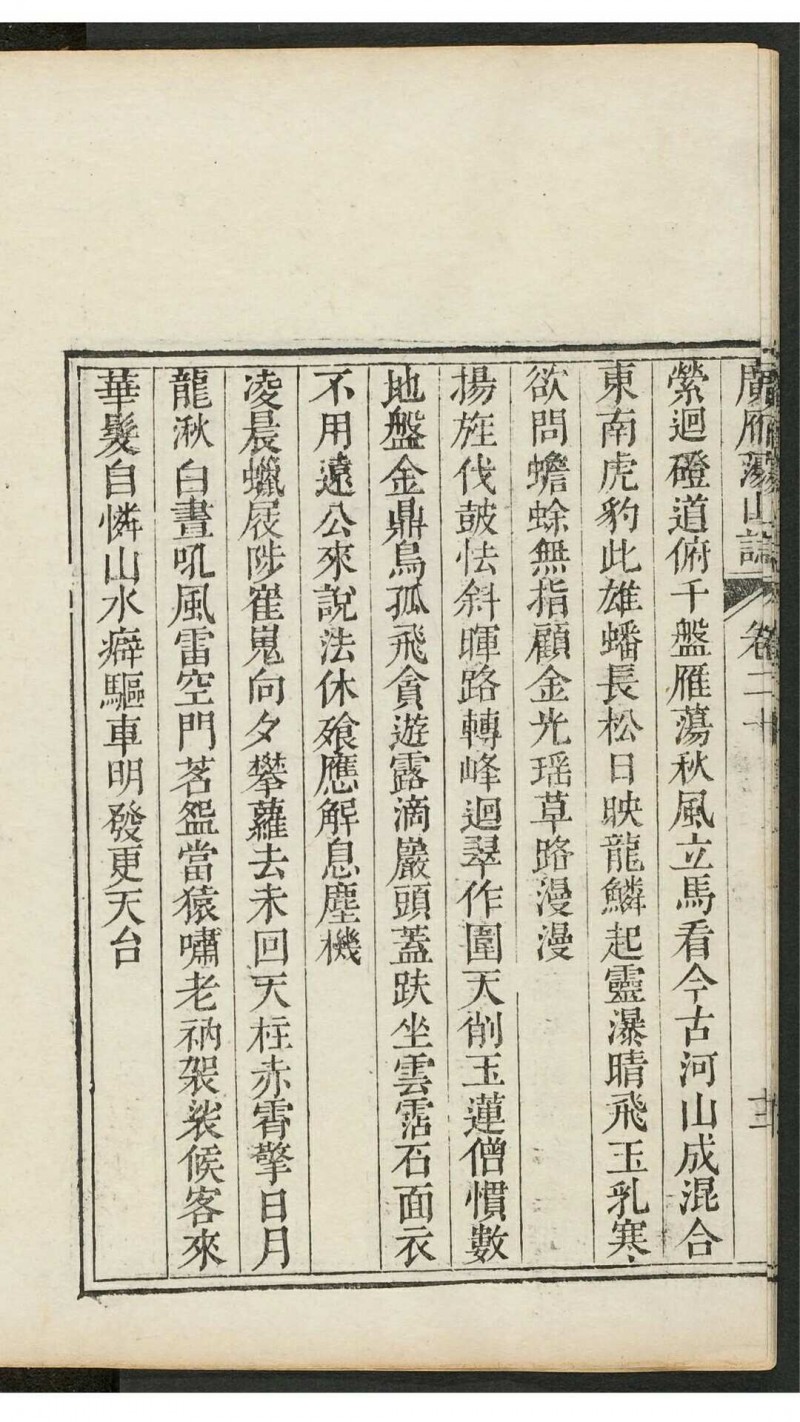 廣雁蕩山誌 卷二十 十二
縈迴磴道俯千盤雁蕩秋風立馬看今古河山成混合
東南虎豹此雄蟠長松日映龍鱗起靈瀑晴飛玉乳寒
欲問蟾蜍無指顧金光瑶草路漫漫
揚旌伐鼓怯斜暉路轉峰迴翠作圍天削玉蓮僧慣數
地盤金鼎鳥孤飛貪遊露滴巖頭蓋趺坐雲霑石面衣
不用遠公來說法休飱應解息塵機
凌晨蠟屐陟崔嵬向夕攀蘿去未回天柱赤霄擎日月
龍湫白晝吼風雷空門茗盌當猿嘯老衲袈裟候客來
華髮自憐山水癖驅車明發更天台